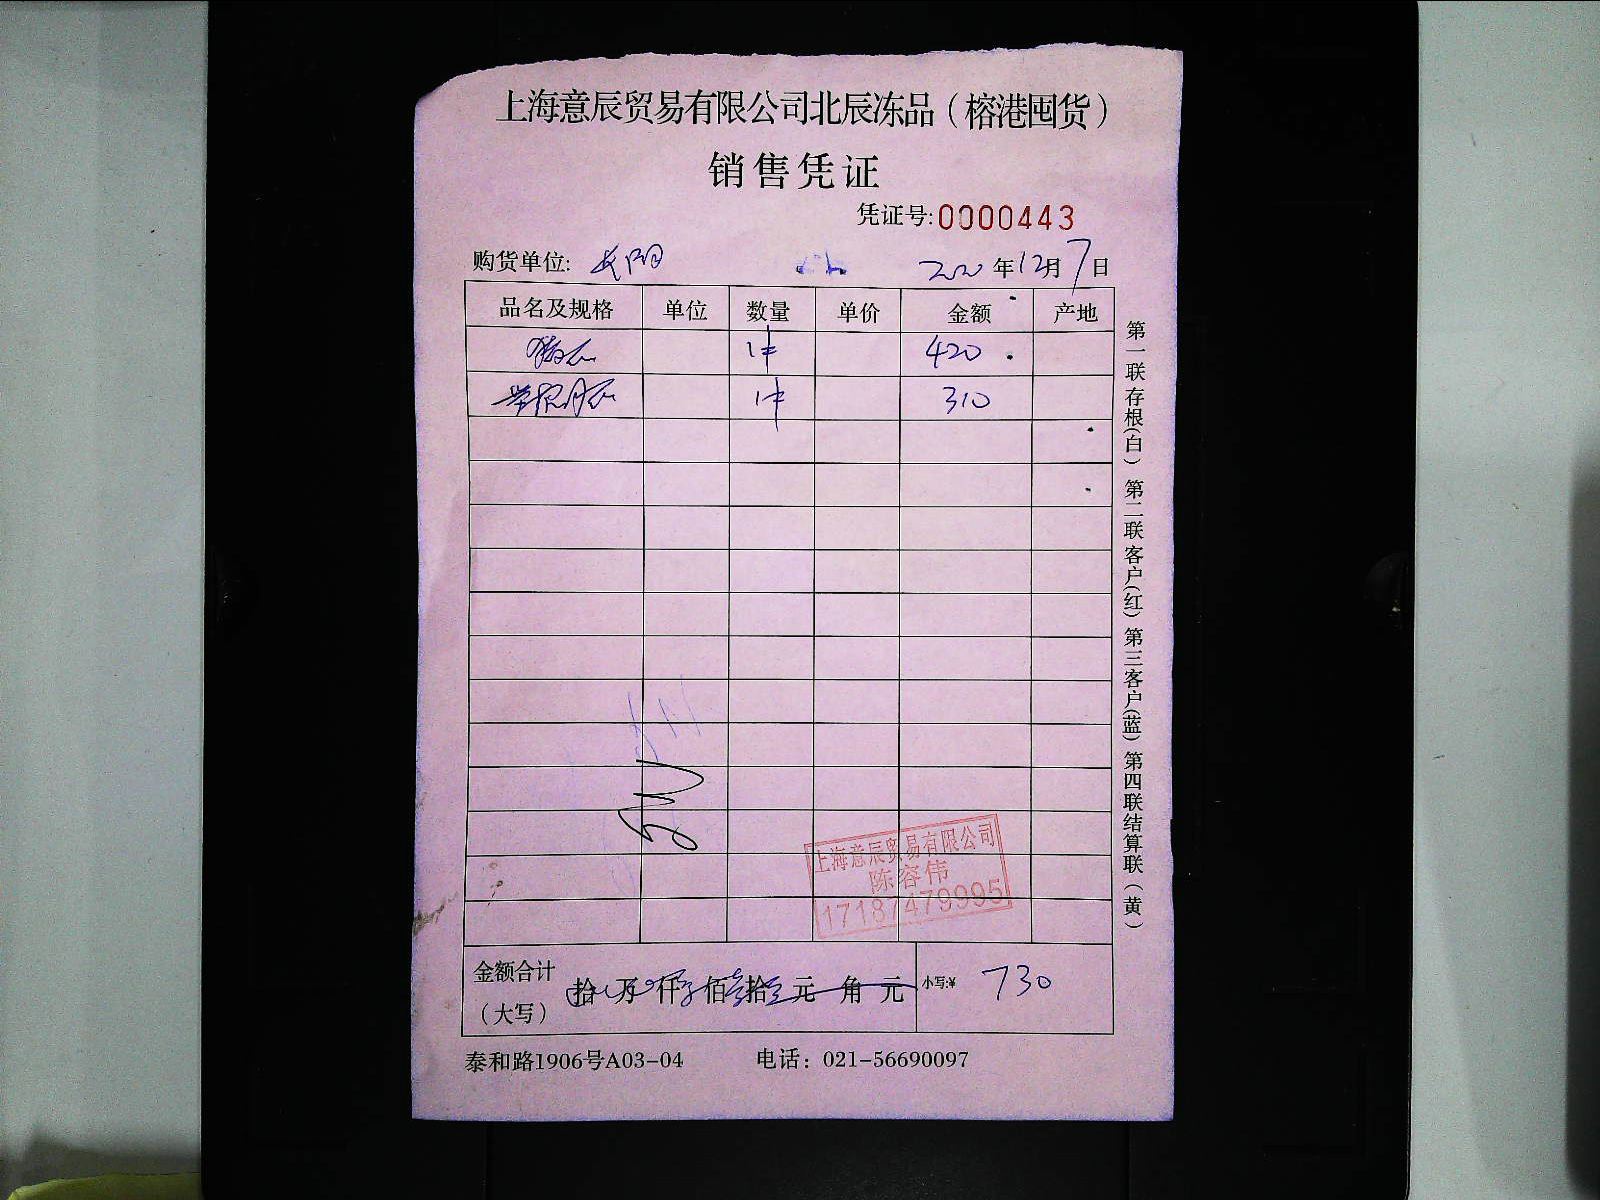 上海意辰贸易有限公司北辰冻品（榕港囤货）
销售凭证
凭证号:0000443
购货单位: 2020年12月7日
品名及规格 单位 数量 单价 金额 产地
1件 420
1件 310
金额合计（大写） 拾 万 仟 佰 拾 元 角 元 小写:¥ 730
泰和路1906号A03-04 电话：021-56690097
第一联存根(白) 第二联客户(红) 第三客户(蓝) 第四联结算联（黄）
上海意辰贸易有限公司
陈容伟
17187479995